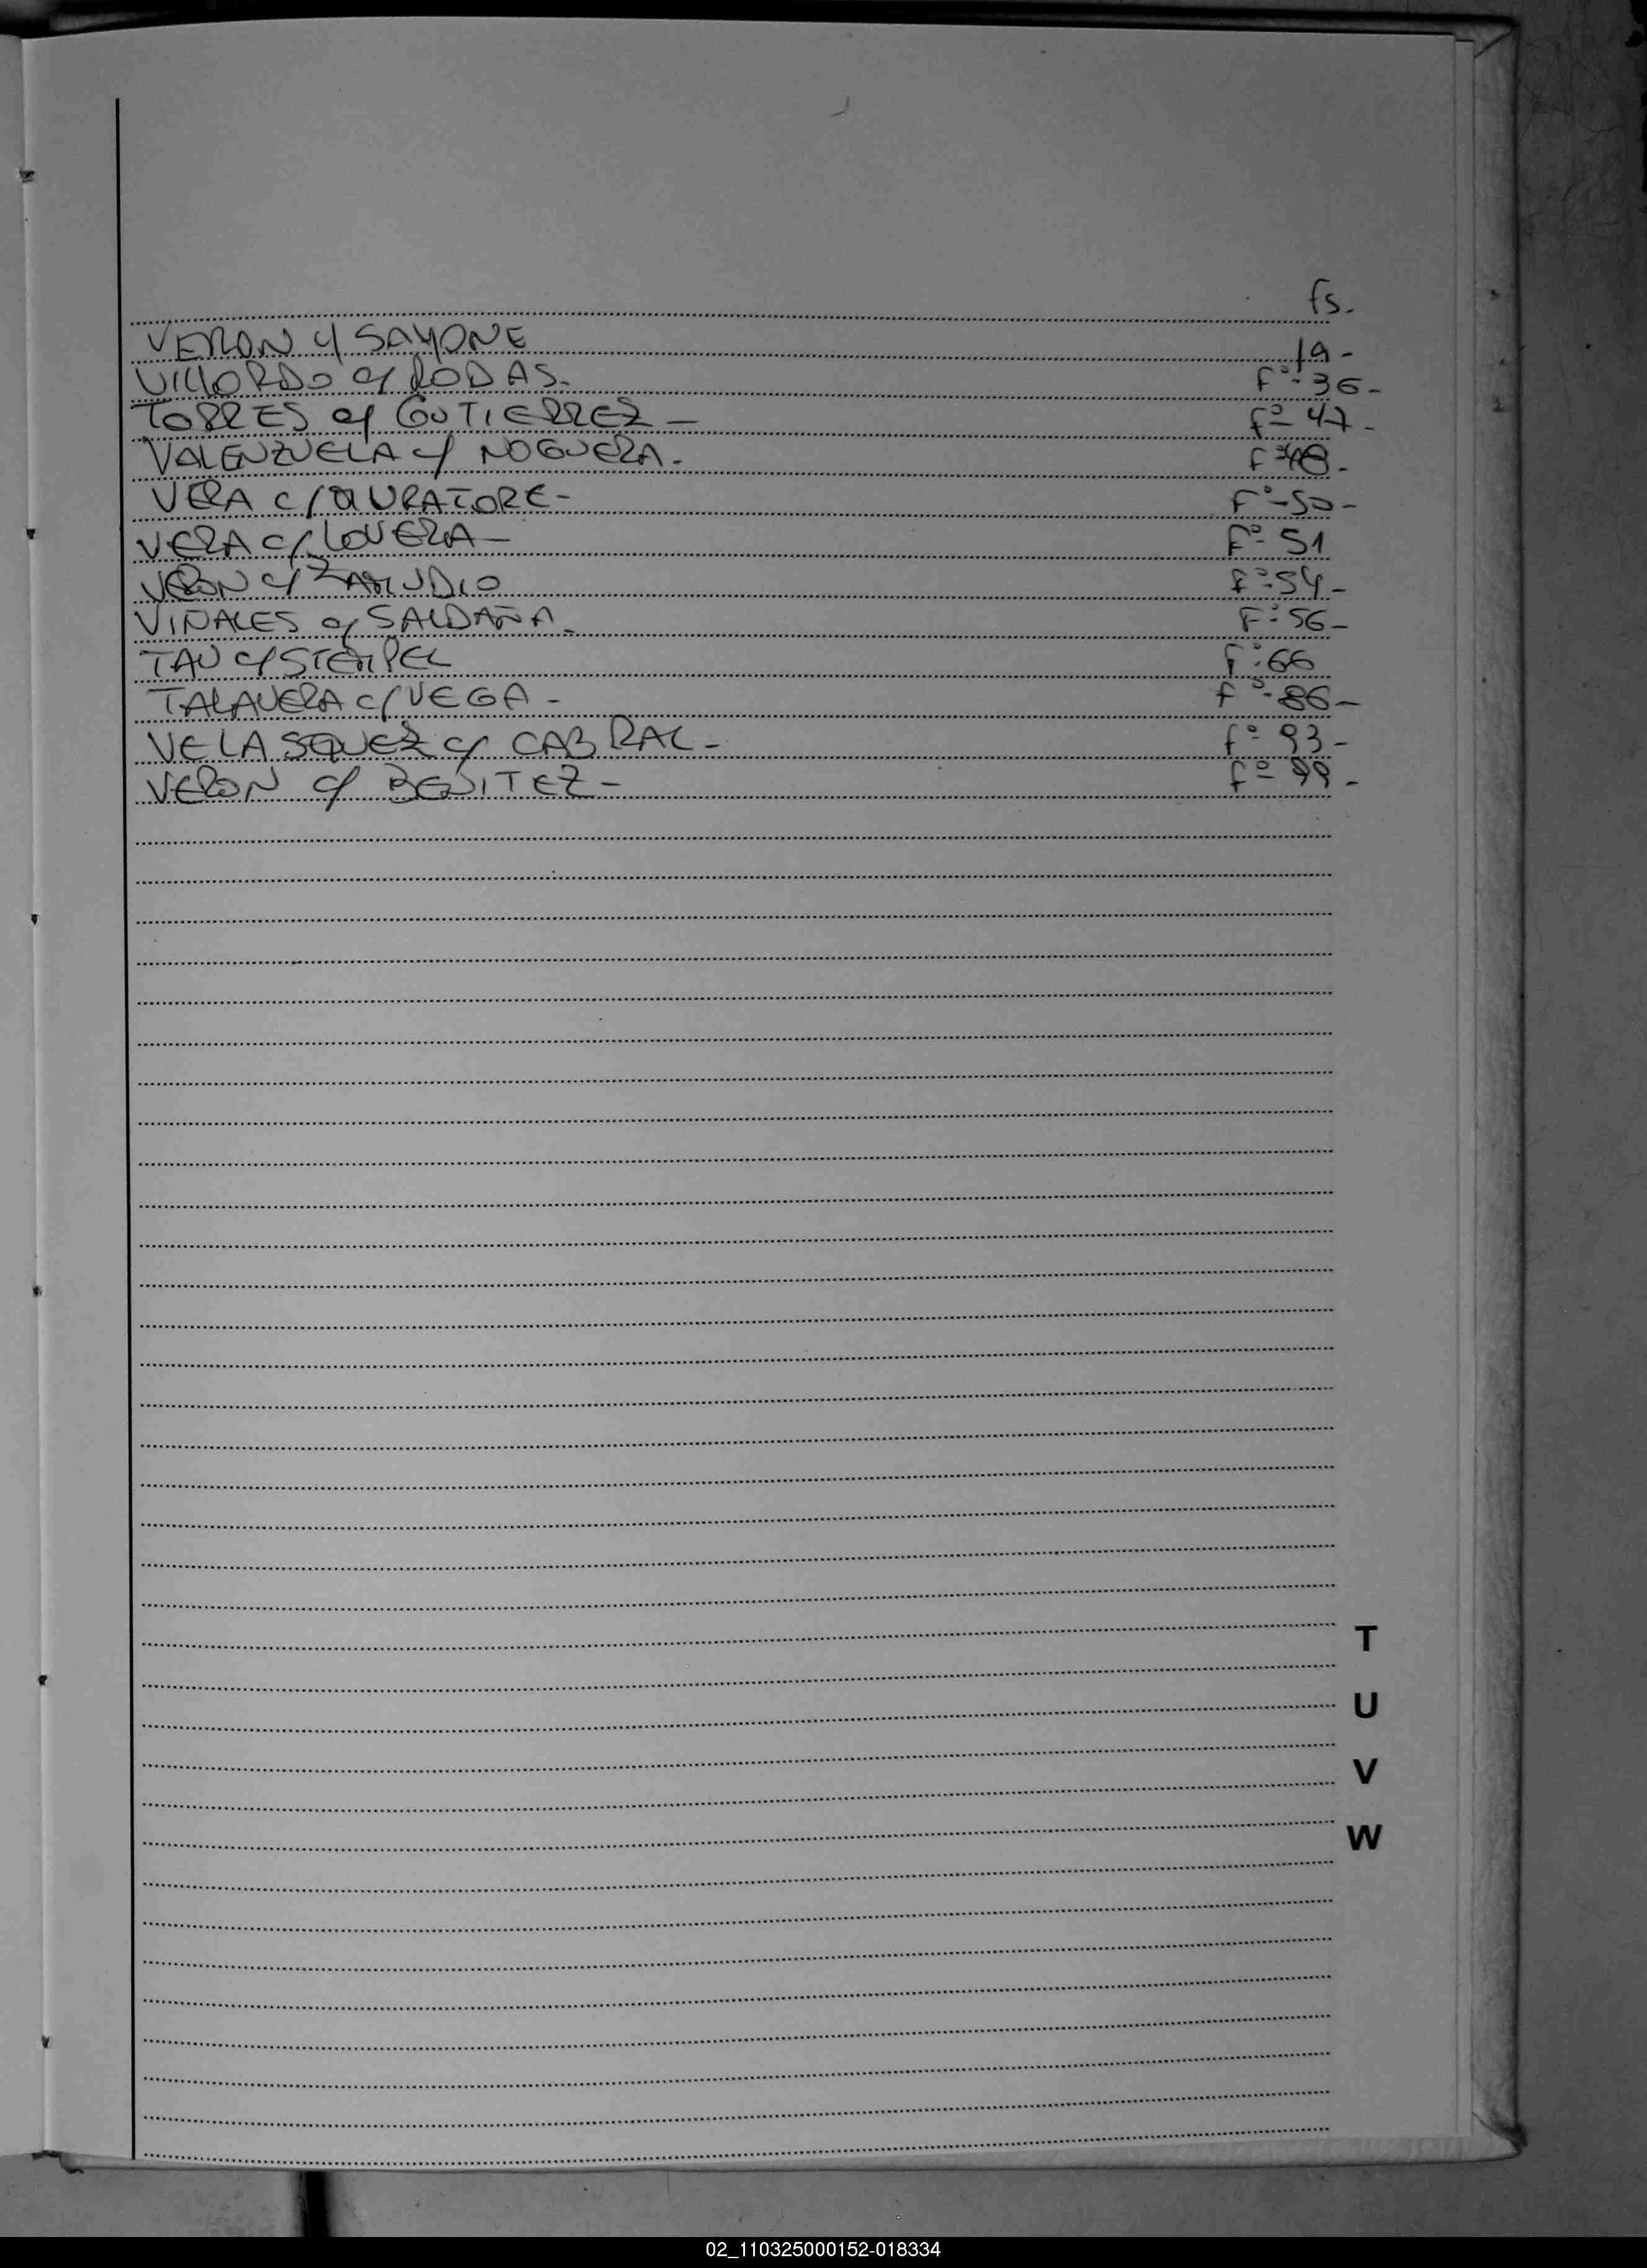 fs.
VERON c/ SAYONE 19-
VILLORDO c/ RODAS- Fº-36-
TORRES c/ GUTIERREZ- fº 47-
VALENZUELA c/ NOGUERA- Fº 48-
VERA c/ Fº-50-
VERA c/ LOVERA- Fº-51
VERON c/ ZAMUDIO fº-54-
VIÑALES c/ SALDAÑA- Fº 56-
TAU c/ STEMPEL fº-66
TALAVERA c/ VEGA- fº-86-
VELASQUEZ c/ CABRAL- fº 93-
VERON c/ BENITEZ- fº 99-
T
U
V
W
02_110325000152-018334